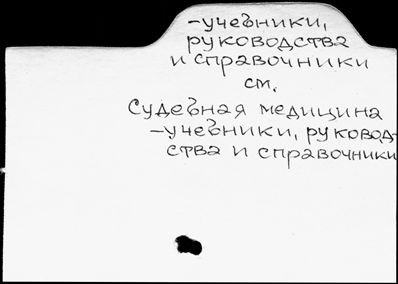 -учебники,
руководства
и справочники
см.
Судебная медицина
-учебники, руковод-
ства и справочники